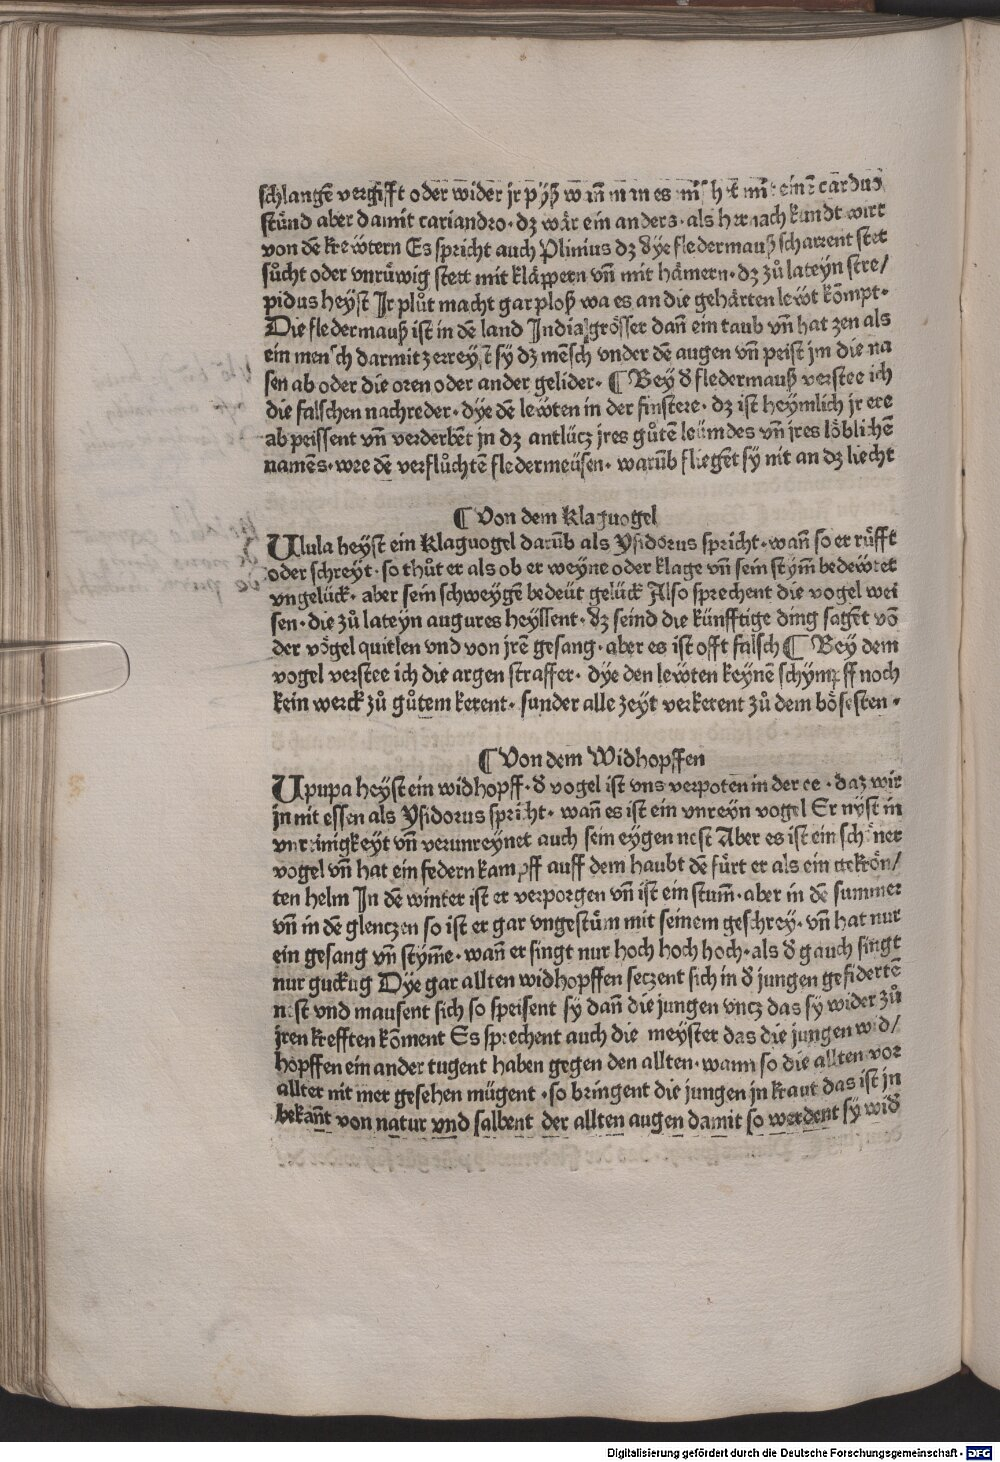 schlangē vergifft oder wider jr pyß cardus
stūnd aber damit cariandro· dz wår ein anders· als hernach kundt wirt
von dē krewtern Es spricht auch Plinius dz dye fledermauß scharrent stet
sůcht oder vnrůwig stett mit klåppern vnd mit håmern· dz zů lateyn stre/
pidus heyst Ir plůt macht gar ploß wa es an die gehårten lewt kōmpt·
Die fledermauß ist in dē land India grösser dañ ein taub vñ hat zen als
ein mensch darmit zerreyſt sy dz mēsch vnder dē augen vñ peist jm die na
sen ab oder die oren oder ander gelider· ¶ Bey đ fledermauß verstee ich
die falschen nachreder· dye dē lewten in der finstere· dz ist heymlich jr ere
ab peissent vñ verderbēt jn dz antlücz jres gůtem leümdes vñ jres löblichē
namēs· wee dē verflůchtē fledermeüsen· warūb fliegent sy nit an dz liecht
¶ Von dem Klaguogel
Ulula heyst ein Klaguogel darūb als Ysidorus spricht· wañ so er růfft
oder schreyt· so thůt er als ob er weyne oder klage vñ sein stym̄ bedewtet
vngelück· aber sein schweygē bedeüt gelück Also sprechent die vogel wei
sen· die zů lateyn augures heyssent· dz seind die künfftige ding sagēt vō
der vögel quitlen vnd von jrē gesang· aber es ist offt falsch ¶ Bey dem
vogel verstee ich die argen straffer· dye den lewten keynē schympff noch
kein werck zů gůtem kerent· sunder alle zeyt verkerent zů dem bösesten·
¶ Von dem Widhopffen
Upupa heyst ein widhopff· đ vogel ist vns verpoten in der ee· daz wir
jn nit essen als Ysidorus spricht· wañ es ist ein vnreyn vogel Er nyst in
vnreinigkeyt vñ verunreynet auch sein eygen nest Aber es ist ein schöner
vogel vñ hat ein federn kampff auff dem haubt dē fürt er als ein gekrön/
ten helm In dē winter ist er verporgen vñ ist ein stum̄· aber in dē summer
vñ in dē glenczen so ist er gar vngestům mit seinem geschrey· vñ hat nur
ein gesang vñ stym̄e· wañ er singt nur hoch hoch hoch· als đ gauch singt
nur guckug Dye gar allten widhopffen seczent sich in đ jungen gefidertē
nest vnd mausent sich so speisent sy dañ die jungen vncz das sy wider zů
jren krefften kōment Es sprechent auch die meyster das die jungen wid/
hopffen ein ander tugent haben gegen den allten· wann so die allten vor
allter nit mer gesehen mügent· so bringent die jungen jn kraut das ist jn
bekañt von natur vnd salbent der allten augen damit so werdent sy wiđ
Digitalisierung gefördert durch die Deutsche Forschungsgemeinschaft - DFG